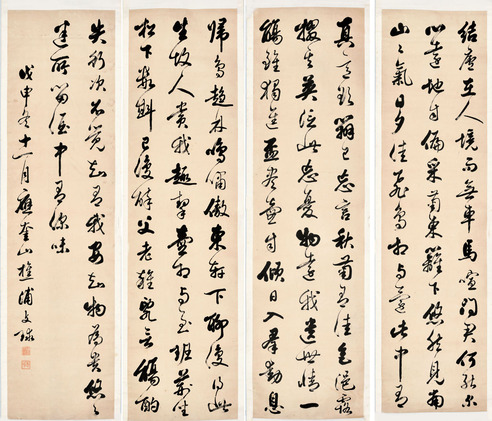 結廬在人境而無車馬喧問君何能爾
心遠地自偏采菊東籬下悠然見南
山山氣日夕佳飛鳥相與還此中有
真意欲辯已忘言秋菊有佳色裛露
掇其英汎此忘憂物遠我遺世情一
觴雖獨進盡壺自傾日入羣動息
歸鳥趨林鳴嘯傲東軒下聊復得此
生故人賞我趣挈壺相與至班荊坐
松下數斟已復醉父老雜亂言觴酌
失行次不覺知有我安知物為貴悠悠
迷所留酒中有深味
戊申冬十一月應奎山樵浦文球